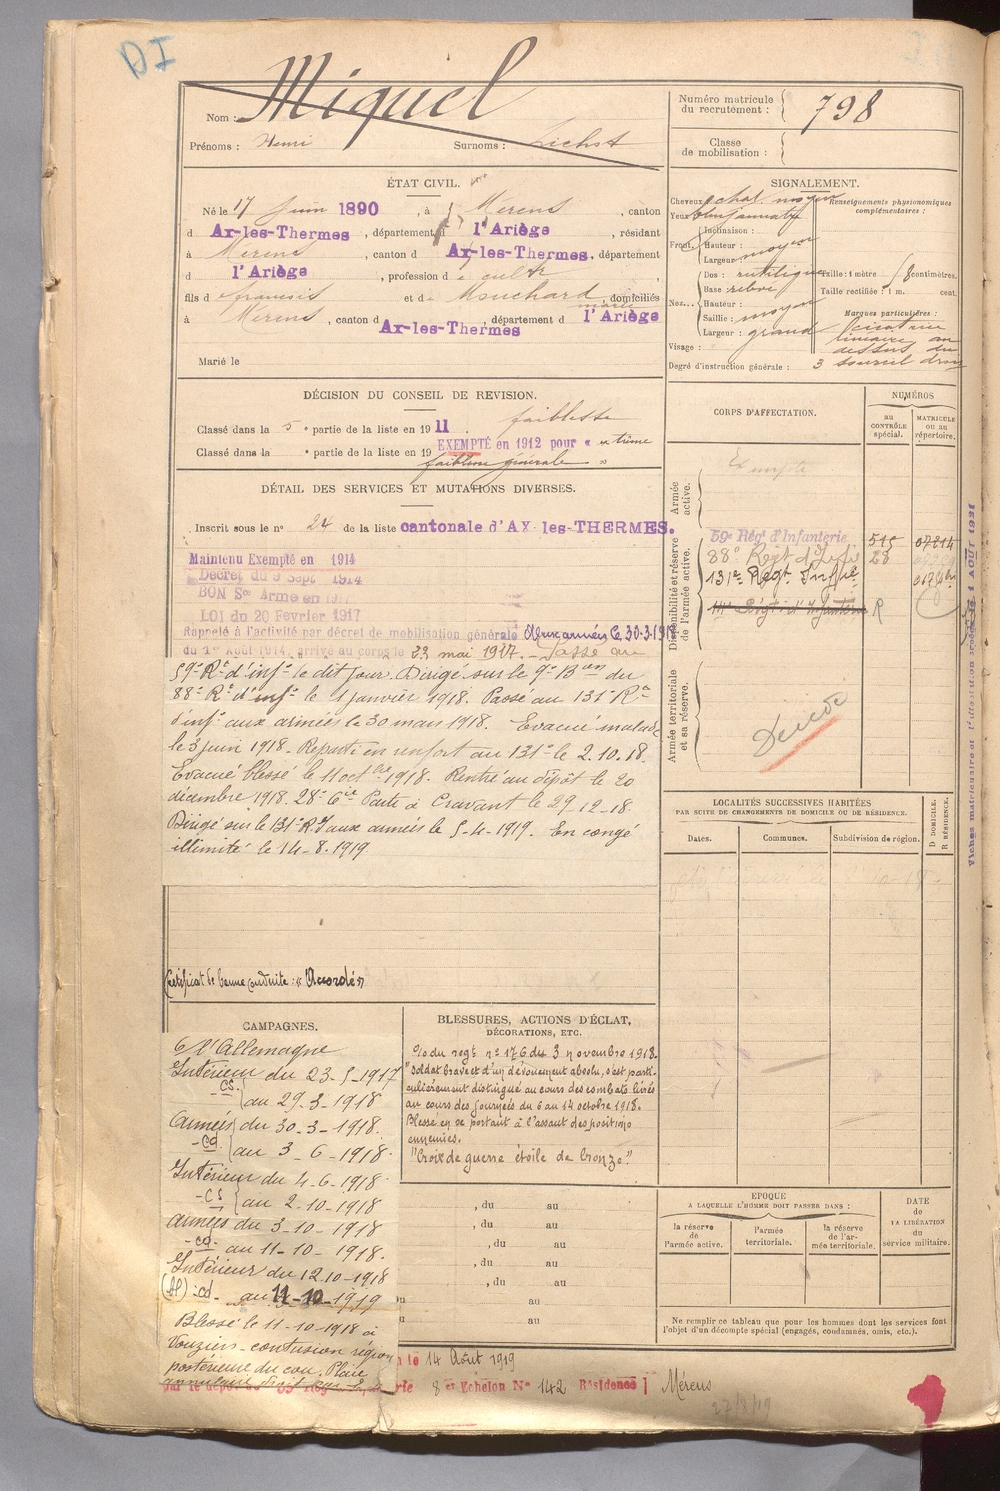 DI
Nom : Miquel
Prénoms : Henri Surnoms :
Numéro matricule du recrutement : 798
Classe de mobilisation :
ÉTAT CIVIL.
Né le 17 Juin 1890, à Mérens, canton
d Ax-les-Thermes, département d l'Ariège, résidant
à Mérens, canton d Ax-les-Thermes, département
d l'Ariège, profession d cultr
fils d François et de Mouchard marie, domiciliés
à Mérens, canton d Ax-les-Thermes, département d l'Ariège
Marié le
SIGNALEMENT.
Cheveux chat. moyen
Yeux
Renseignements physionomiques complémentaires :
Front. Inclinaison :
Hauteur : moyen
Largeur
Nez... Dos : rectiligne
Base relevé
Hauteur :
Saillie : moyen
Largeur : grand
Visage :
Taille : 1 mètre centimètres.
Taille rectifiée : 1 m. cent.
Marques particulières :
Cicatrice
linéaire au
dessus du
sourcil droit
Degré d'instruction générale : 3
DÉCISION DU CONSEIL DE REVISION.
Classé dans la 5e partie de la liste en 1911 faiblesse
Classé dans la e partie de la liste en 19 EXEMPTÉ en 1912 pour «
faiblesse générale »
DÉTAIL DES SERVICES ET MUTATIONS DIVERSES.
Inscrit sous le n° 24 de la liste cantonale d'AX-les-THERMES.
Maintenu Exempté en 1914
Décret du 9 Sept 1914
BON Sce Armé en 1917
LOI du 20 Février 1917
Rappelé à l'activité par décret de mobilisation générale Aux armées le 30-3-1918
du 1er Août 1914, arrivé au corps le 23 mai 1917. - Passé au
59e Rt d'infie le dit jour. Dirigé sur le 9e Bon du
88e Rt d'infie le 1 janvier 1918. Passé au 131e Rt
d'infie aux armées le 30 mars 1918. Evacué malade
le 3 juin 1918. Reparti en renfort au 131e le 2.10.18.
Evacué blessé le 11 octbre 1918. Rentré au dépôt le 20
décembre 1918. 28e Cie Parti à Cravant le 29.12.18.
Dirigé sur le 131e R.I aux armées le 5-4-1919. En congé
illimité le 14-8.1919
Certificat de bonne conduite : "Accordé"
CORPS D'AFFECTATION.
NUMÉROS
au CONTRÔLE spécial.
MATRICULE OU AU répertoire.
Armée active.
Exempté
Disponibilité et réserve de l'armée active.
59e Régt d'Infanterie 515 07814
88e Régt d'Infie 28
131e Régt Infie
Régt d'Infanterie R
Armée territoriale et sa réserve.
Décédé
LOCALITÉS SUCCESSIVES HABITÉES
PAR SUITE DE CHANGEMENTS DE DOMICILE OU DE RÉSIDENCE.
Dates. Communes. Subdivision de région. D DOMICILE. R RÉSIDENCE.
1 AOUT 1931
CAMPAGNES.
C l'Allemagne
Intérieur du 23-5-1917
-CS. au 29-3-1918
Armées du 30-3-1918.
-CD au 3-6-1918.
Intérieur du 4-6-1918
-CS au 2-10-1918
Armées du 3-10-1918
-CD. au 11-10-1918.
Intérieur du 12.10-1918
(Bl) : CD. au 11-10-1919
Blessé le 11-10-1918 à
Vouziers - contusion région
postérieure du cou. Plaie
annulaire droit
BLESSURES, ACTIONS D'ÉCLAT,
DÉCORATIONS, ETC.
O/o du regt n° 176 du 3 novembre 1918.
"Soldat brave et d'un dévouement absolu, s'est parti-
culièrement distingué au cours des combats livrés
au cours des journées du 6 au 14 octobre 1918.
Blessé en se portant à l'assaut des positions
ennemies."
"Croix de guerre étoile de bronze".
, du au
, du au
, du au
, du au
, du au
au
au
EPOQUE
A LAQUELLE L'HOMME DOIT PASSER DANS :
la réserve de l'armée active.
l'armée territoriale.
la réserve de l'armée territoriale.
DATE de LA LIBÉRATION du service militaire.
Ne remplir ce tableau que pour les hommes dont les services font
l'objet d'un décompte spécial (engagés, condamnés, omis, etc.).
le 14 Août 1919
8e Echelon N° 142 Résidence : Mérens
27/8/19